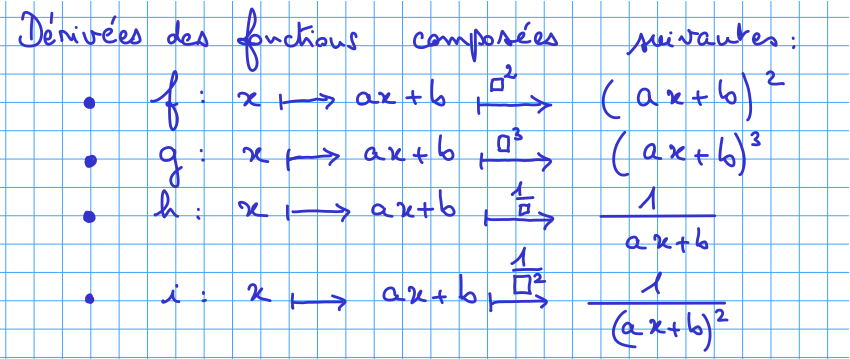 Dérivées des fonctions composées suivantes :
• f : x ⟼ ax+b ⟼(□²) (ax+b)²
• g : x ⟼ ax+b ⟼(□³) (ax+b)³
• h : x ⟼ ax+b ⟼(1/□) 1/(ax+b)
• i : x ⟼ ax+b ⟼(1/□²) 1/(ax+b)²